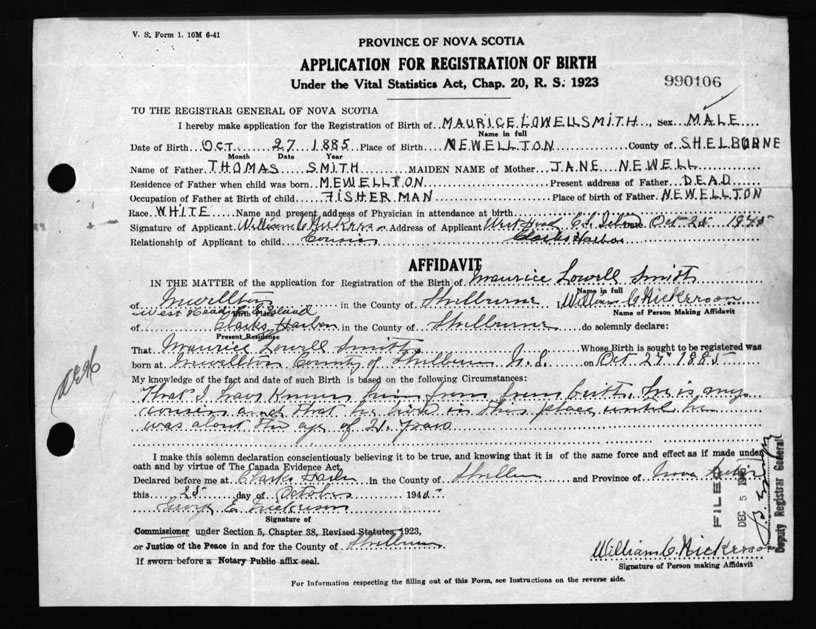 V. S. Form 1. 10M 6-41
PROVINCE OF NOVA SCOTIA
APPLICATION FOR REGISTRATION OF BIRTH
Under the Vital Statistics Act, Chap. 20, R. S. 1923
990106
TO THE REGISTRAR GENERAL OF NOVA SCOTIA
I hereby make application for the Registration of Birth of MAURICE LOWELL SMITH, Sex MALE
Name in full
Date of Birth OCT 27 1885 Place of Birth NEWELLTON County of SHELBURNE
Month Date Year
Name of Father THOMAS SMITH MAIDEN NAME of Mother JANE NEWELL
Residence of Father when child was born MEWELLTON Present address of Father DEAD
Occupation of Father at Birth of child FISHERMAN Place of birth of Father NEWELLTON
Race WHITE Name and present address of Physician in attendance at birth
Signature of Applicant William C Nickerson Address of Applicant West Head Oct 25 1945
Relationship of Applicant to child Cousin Clarks Harbor
AFFIDAVIT
IN THE MATTER of the application for Registration of the Birth of Maurice Lowell Smith
Name in full
of Newellton in the County of Shelburne I, William C Nickerson
West Head Island
Birth Place
Name of Person Making Affidavit
of Clarks Harbor in the County of Shelburne do solemnly declare:
Present Residence
That Maurice Lowell Smith Whose Birth is sought to be registered was
born at Newellton County of Shelburne N.S. on Oct 27 1885
My knowledge of the fact and date of such Birth is based on the following Circumstances:
That I have known him from birth. he is my
cousin and that he lived in this place until he
was about the age of 21 years
I make this solemn declaration conscientiously believing it to be true, and knowing that it is of the same force and effect as if made under
oath and by virtue of The Canada Evidence Act.
Declared before me at Clarks Harbor in the County of Shelburne and Province of Nova Scotia
this 25 day of October 1945
George E. Nickerson
Signature of
Commissioner under Section 5, Chapter 38, Revised Statutes, 1923,
or Justice of the Peace in and for the County of Shelburne
If sworn before a Notary Public affix seal.
William C. Nickerson
Signature of Person making Affidavit
FILED
DEC 5
Deputy Registrar General
For Information respecting the filling out of this Form, see Instructions on the reverse side.